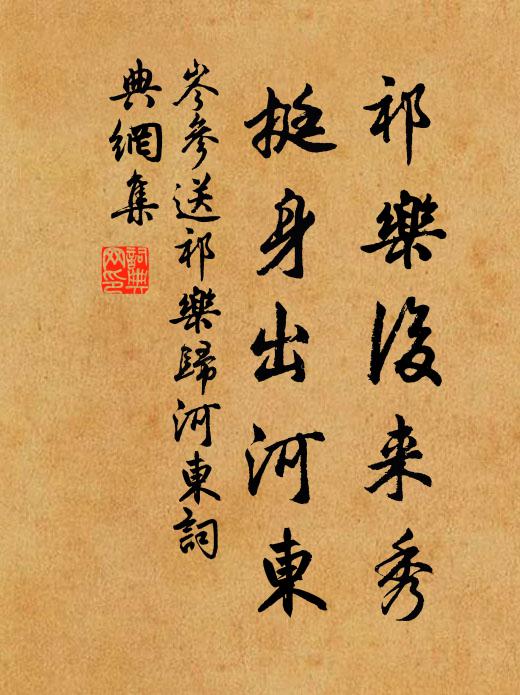 祁樂後来秀
挺身出河東
岑參送祁樂歸河東詞
典網集
詞典网印